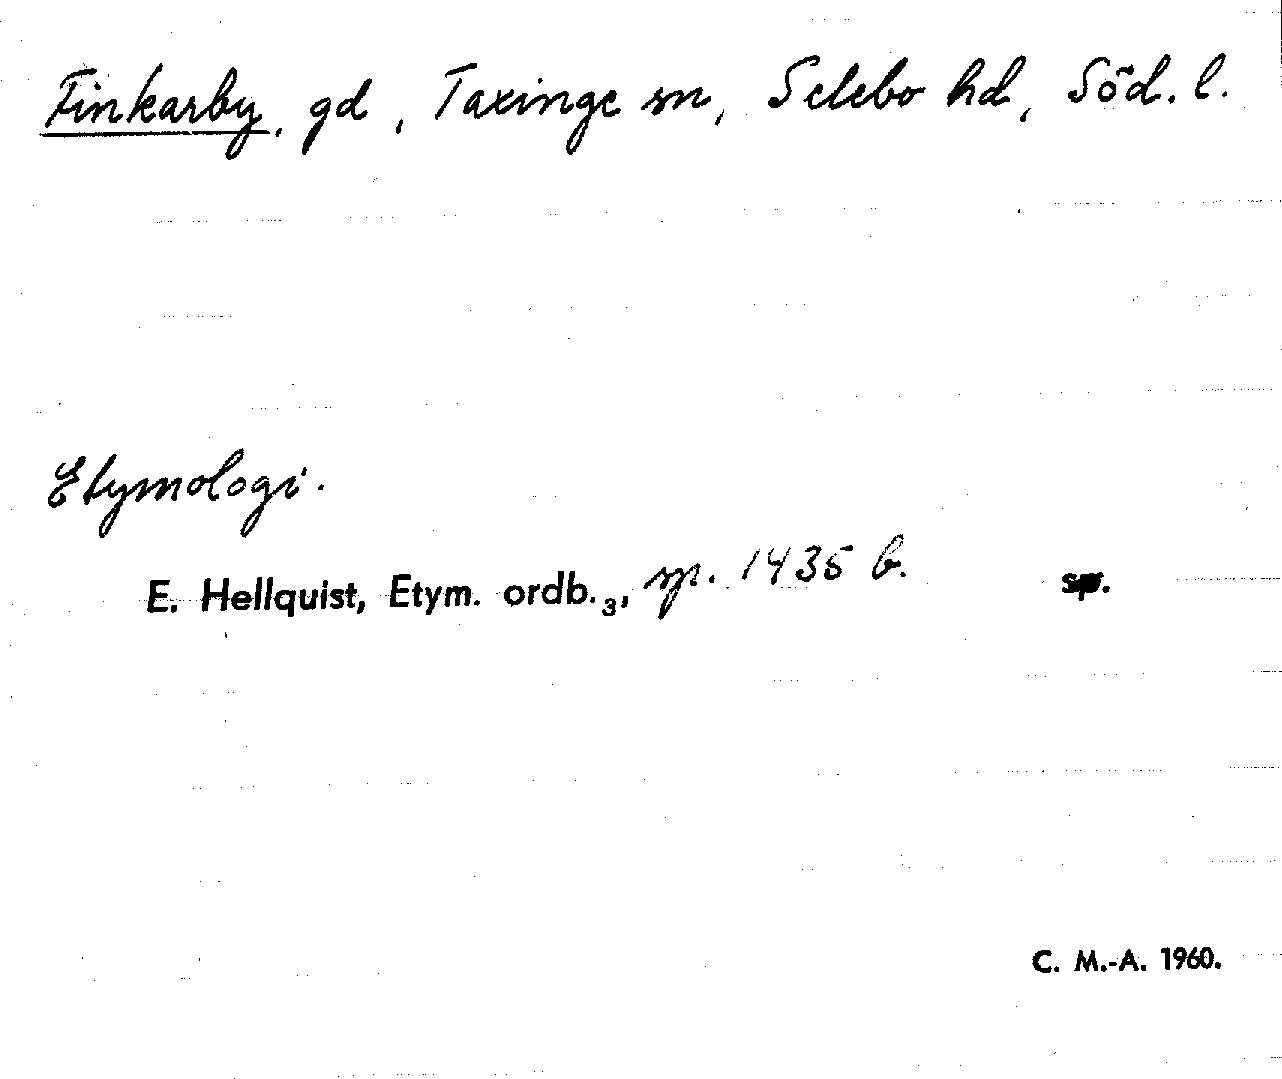 Finkarby, gd, Taxinge sn, Selebo hd, Söd. l.
Etymologi.
E. Hellquist, Etym. ordb.₃, sp. 1435 b.
C. M.-A. 1960.